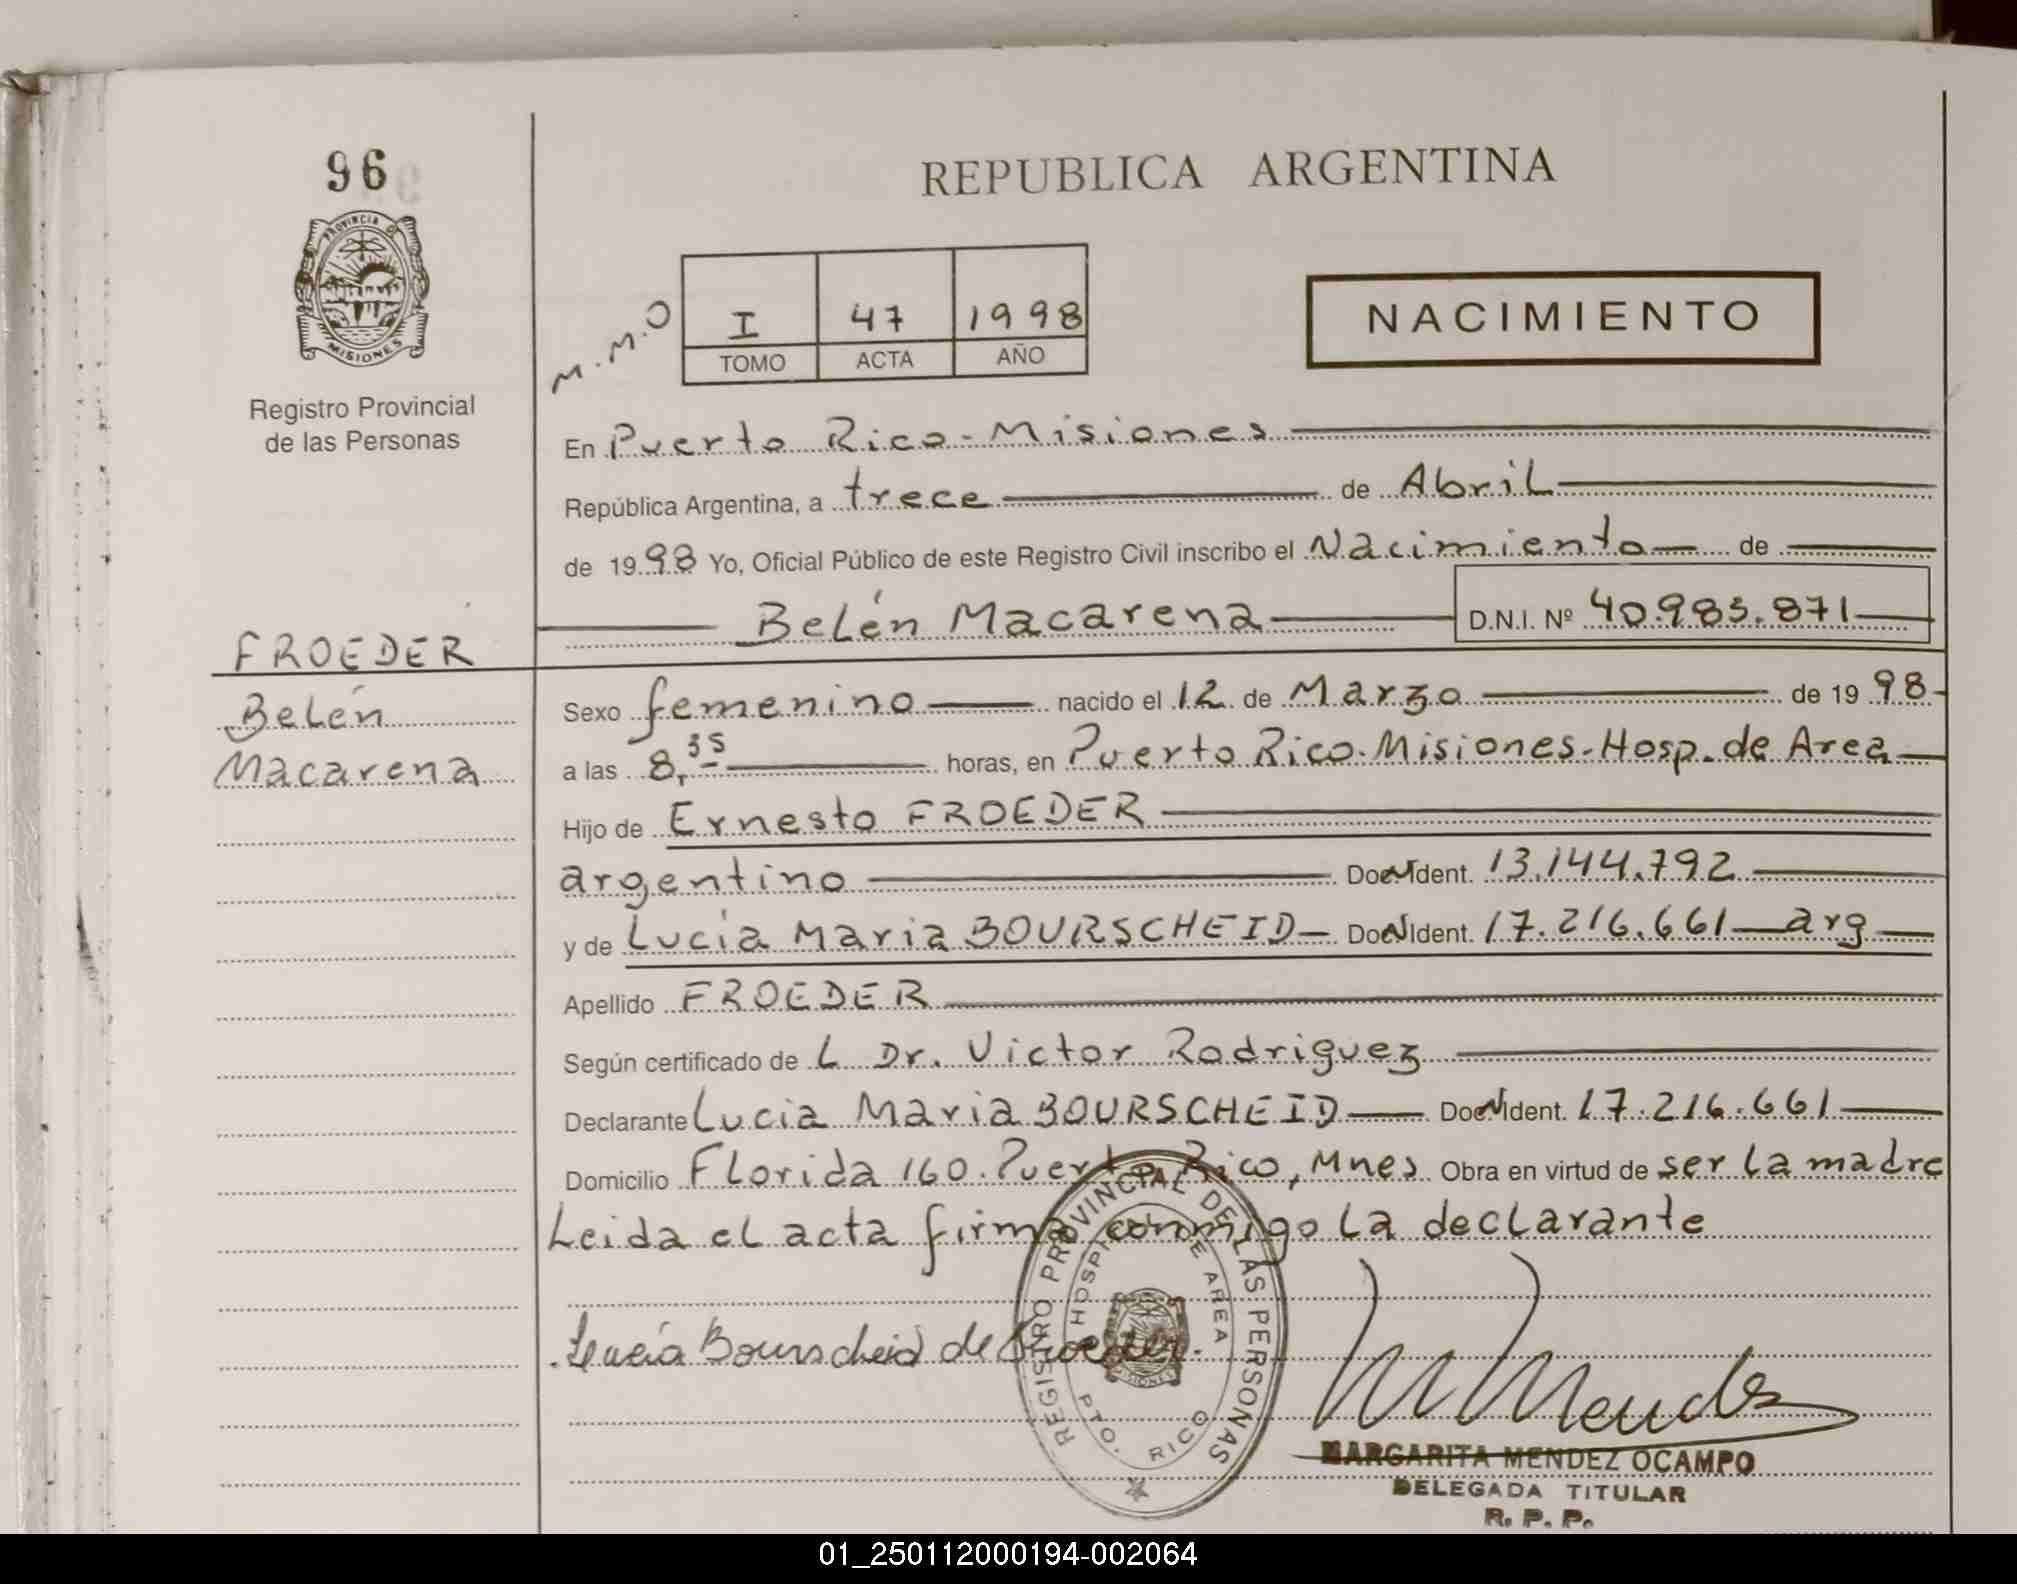 96
PROVINCIA D
MISIONES
Registro Provincial
de las Personas
REPUBLICA ARGENTINA
M.M.O
I 47 1998
TOMO ACTA AÑO
NACIMIENTO
En Puerto Rico-Misiones
República Argentina, a trece de Abril
de 1998 Yo, Oficial Público de este Registro Civil inscribo el Nacimiento de
Belén Macarena D.N.I. Nº 40.983.871
FROEDER
Belén
Macarena
Sexo femenino nacido el 12 de Marzo de 1998
a las 8,35 horas, en Puerto Rico-Misiones-Hosp. de Area
Hijo de Ernesto FROEDER
argentino Ident. 13.144.792
y de Lucía Maria BOURSCHEID Ident. 17.216.661 arg
Apellido FROEDER
Según certificado de L Dr. Victor Rodriguez
Declarante Lucia Maria BOURSCHEID Ident. 17.216.661
Domicilio Florida 160. Puerto Rico, Mnes Obra en virtud de ser la madre
Leida el acta firma conmigo la declarante
Lucía Bourscheid de Froeder.
REGISTRO PROVINCIAL DE LAS PERSONAS
HOSPITAL DE AREA
MISIONES
PTO. RICO
M Mendez
MARGARITA MENDEZ OCAMPO
DELEGADA TITULAR
R. P. P.
01_250112000194-002064